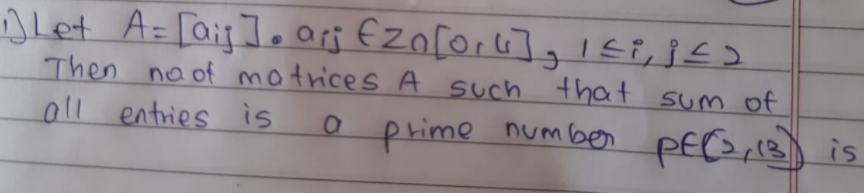 1) Let A = [aij] . aij ∈ Z ∩ [0, 4], 1 ≤ i, j ≤ 2
Then no of matrices A such that sum of
all entries is a prime number p∈(2, 13) is